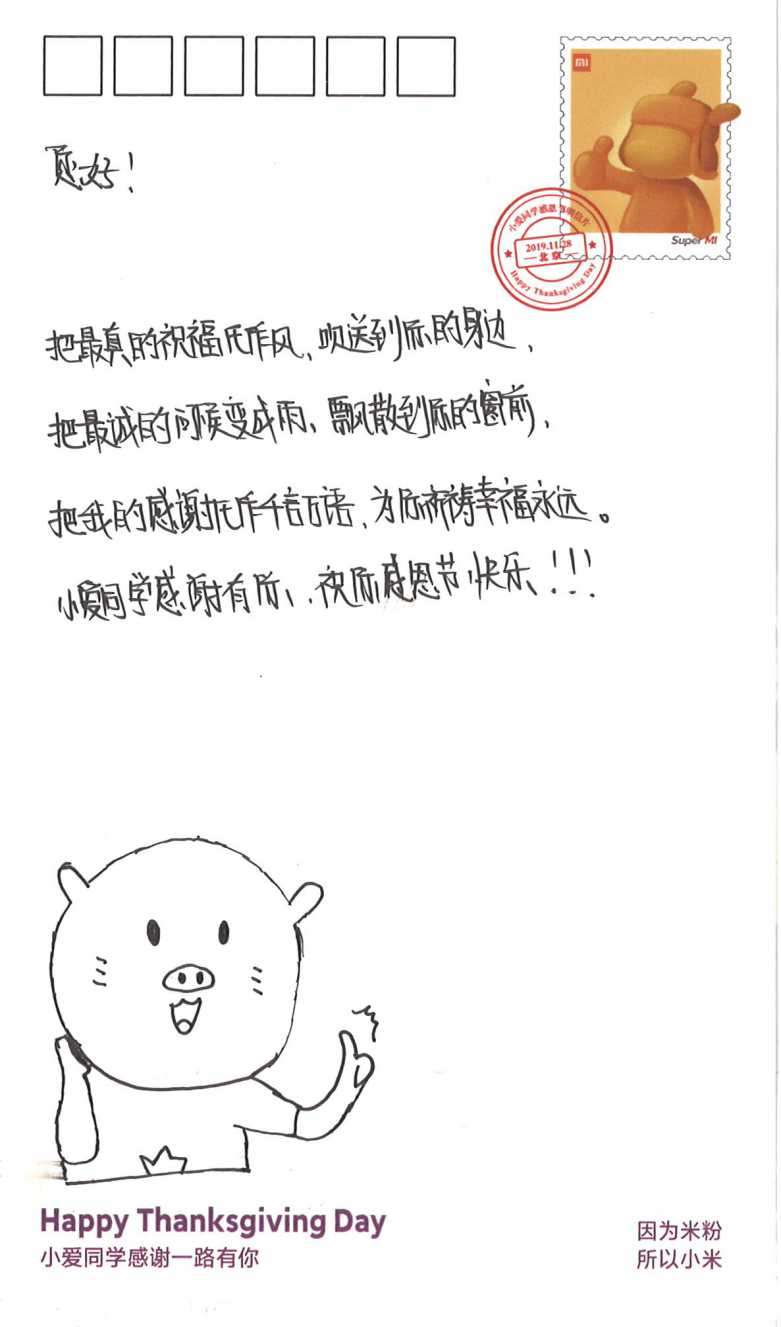 MI
您好！
Super MI
小爱同学感恩节明信片
2019.11.28
北京
Happy Thanksgiving Day
把最真的祝福化作风、吹送到你的身边，
把最诚的问候变成雨、飘散到你的窗前，
把我的感谢托作千言万语，为你祈祷幸福永远。
小爱同学感谢有你、祝你感恩节快乐！！！
Happy Thanksgiving Day
小爱同学感谢一路有你
因为米粉
所以小米